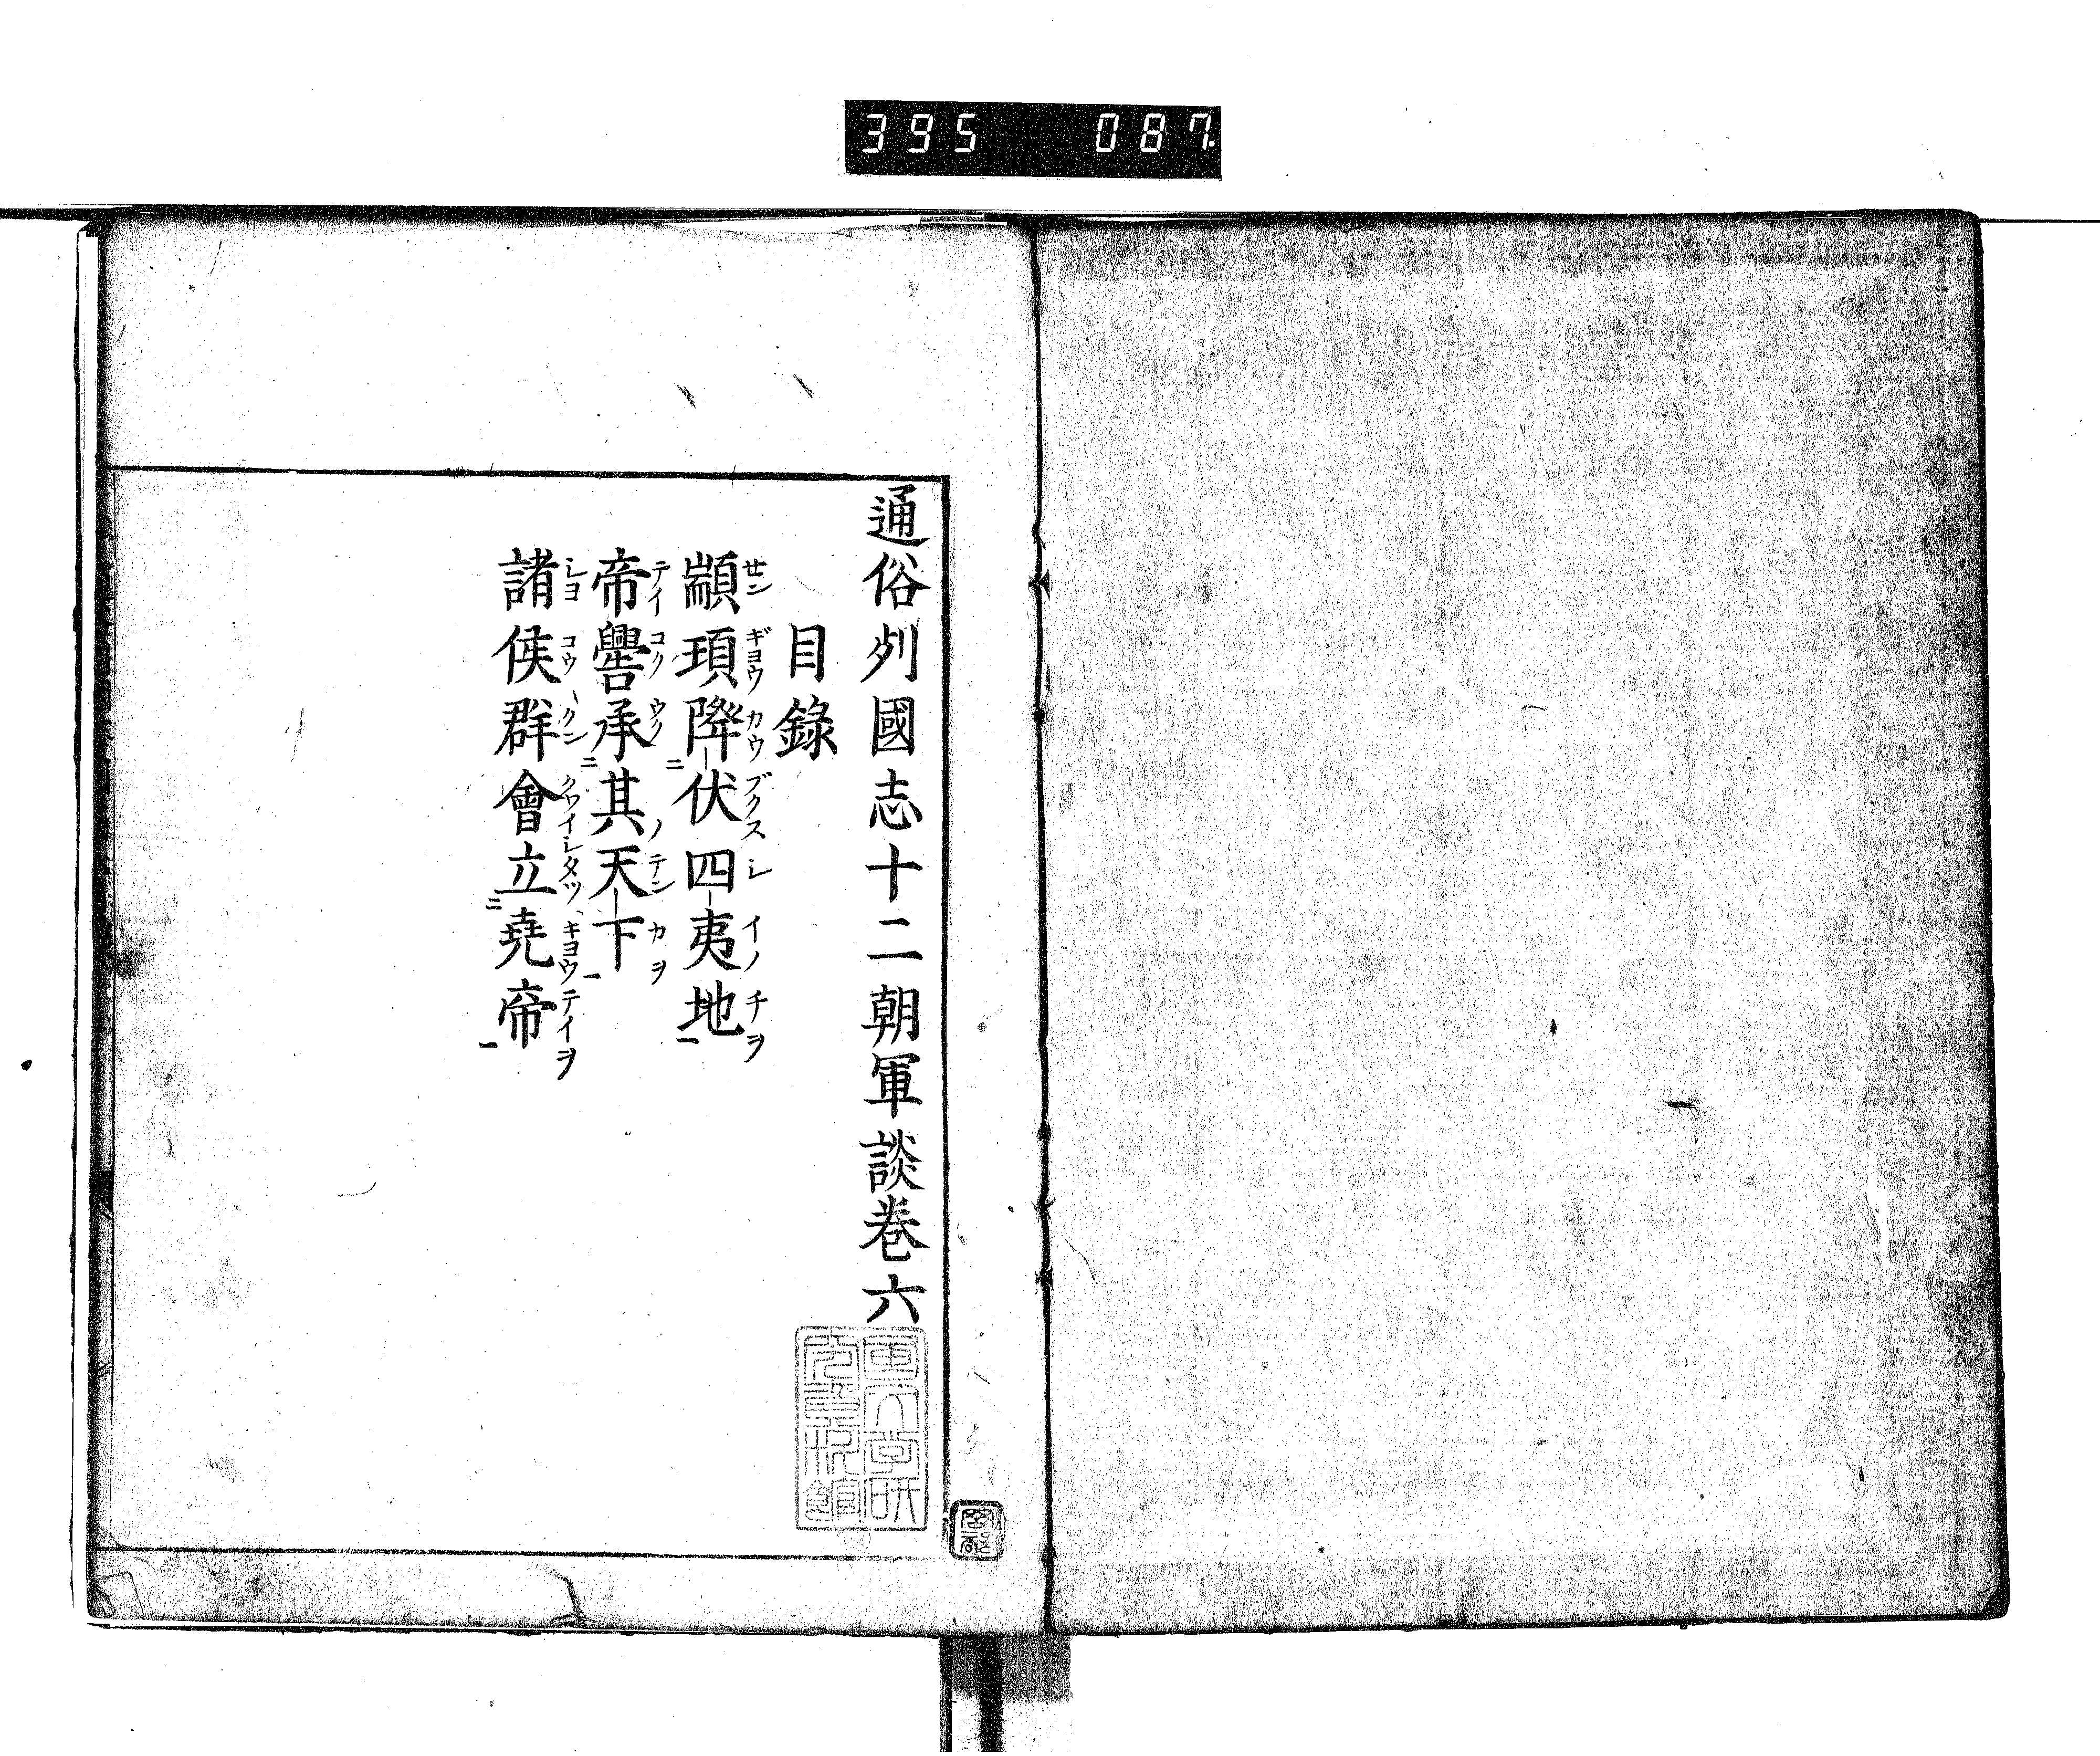 395 087
通俗列國志十二朝軍談巻六
目錄
顓頊降伏四夷地
帝嚳承其天下
諸侯群會立堯帝